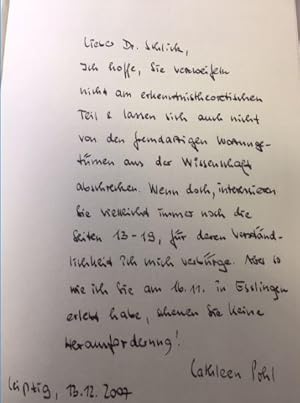 Lieber Dr. Schlich,
Ich hoffe, Sie verzweifeln
nicht am erkenntnistheoretischen
Teil & lassen sich auch nicht
von den fremdartigen Wortunge-
tümen aus der Wissenschaft
abschrecken. Wenn doch, interessieren
Sie vielleicht immer noch die
Seiten 13-19, für deren Verständ-
lichkeit ich mich verbürge. Aber so
wie ich Sie am 16.11. in Esslingen
erlebt habe, scheuen Sie keine
Herausforderung!
Cathleen Pohl
Leipzig, 13.12.2007